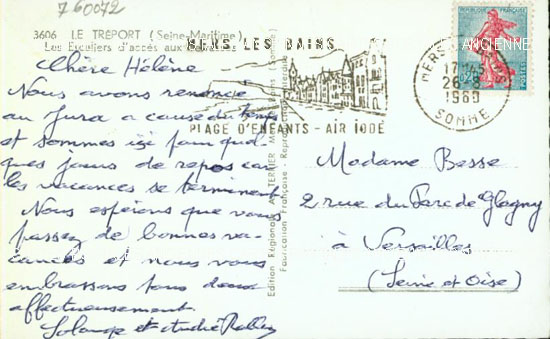 760072
3606 LE TRÉPORT (Seine-Maritime)
Les Escaliers d'accès aux
MERS LES BAINS
PLAGE D'ENFANTS - AIR IODÉ
MERS
17H45
26-8
1960
SOMME
REPUBLIQUE FRANÇAISE
ANCIENNE
Chère Hélène
Nous avons renoncé
au Jura a cause du temps
et sommes ici pour quel-
ques jours de repos car
les vacances se terminent
Nous espérons que vous
passez de bonnes va-
cances et nous vous
embrassons tous deux
affectueusement
Solange et André
Edition Régionale A. TERRIER
Fabrication Française - Reproduction
Madame Besse
2 rue du Parc de Glagny
à Versailles
(Seine et Oise)